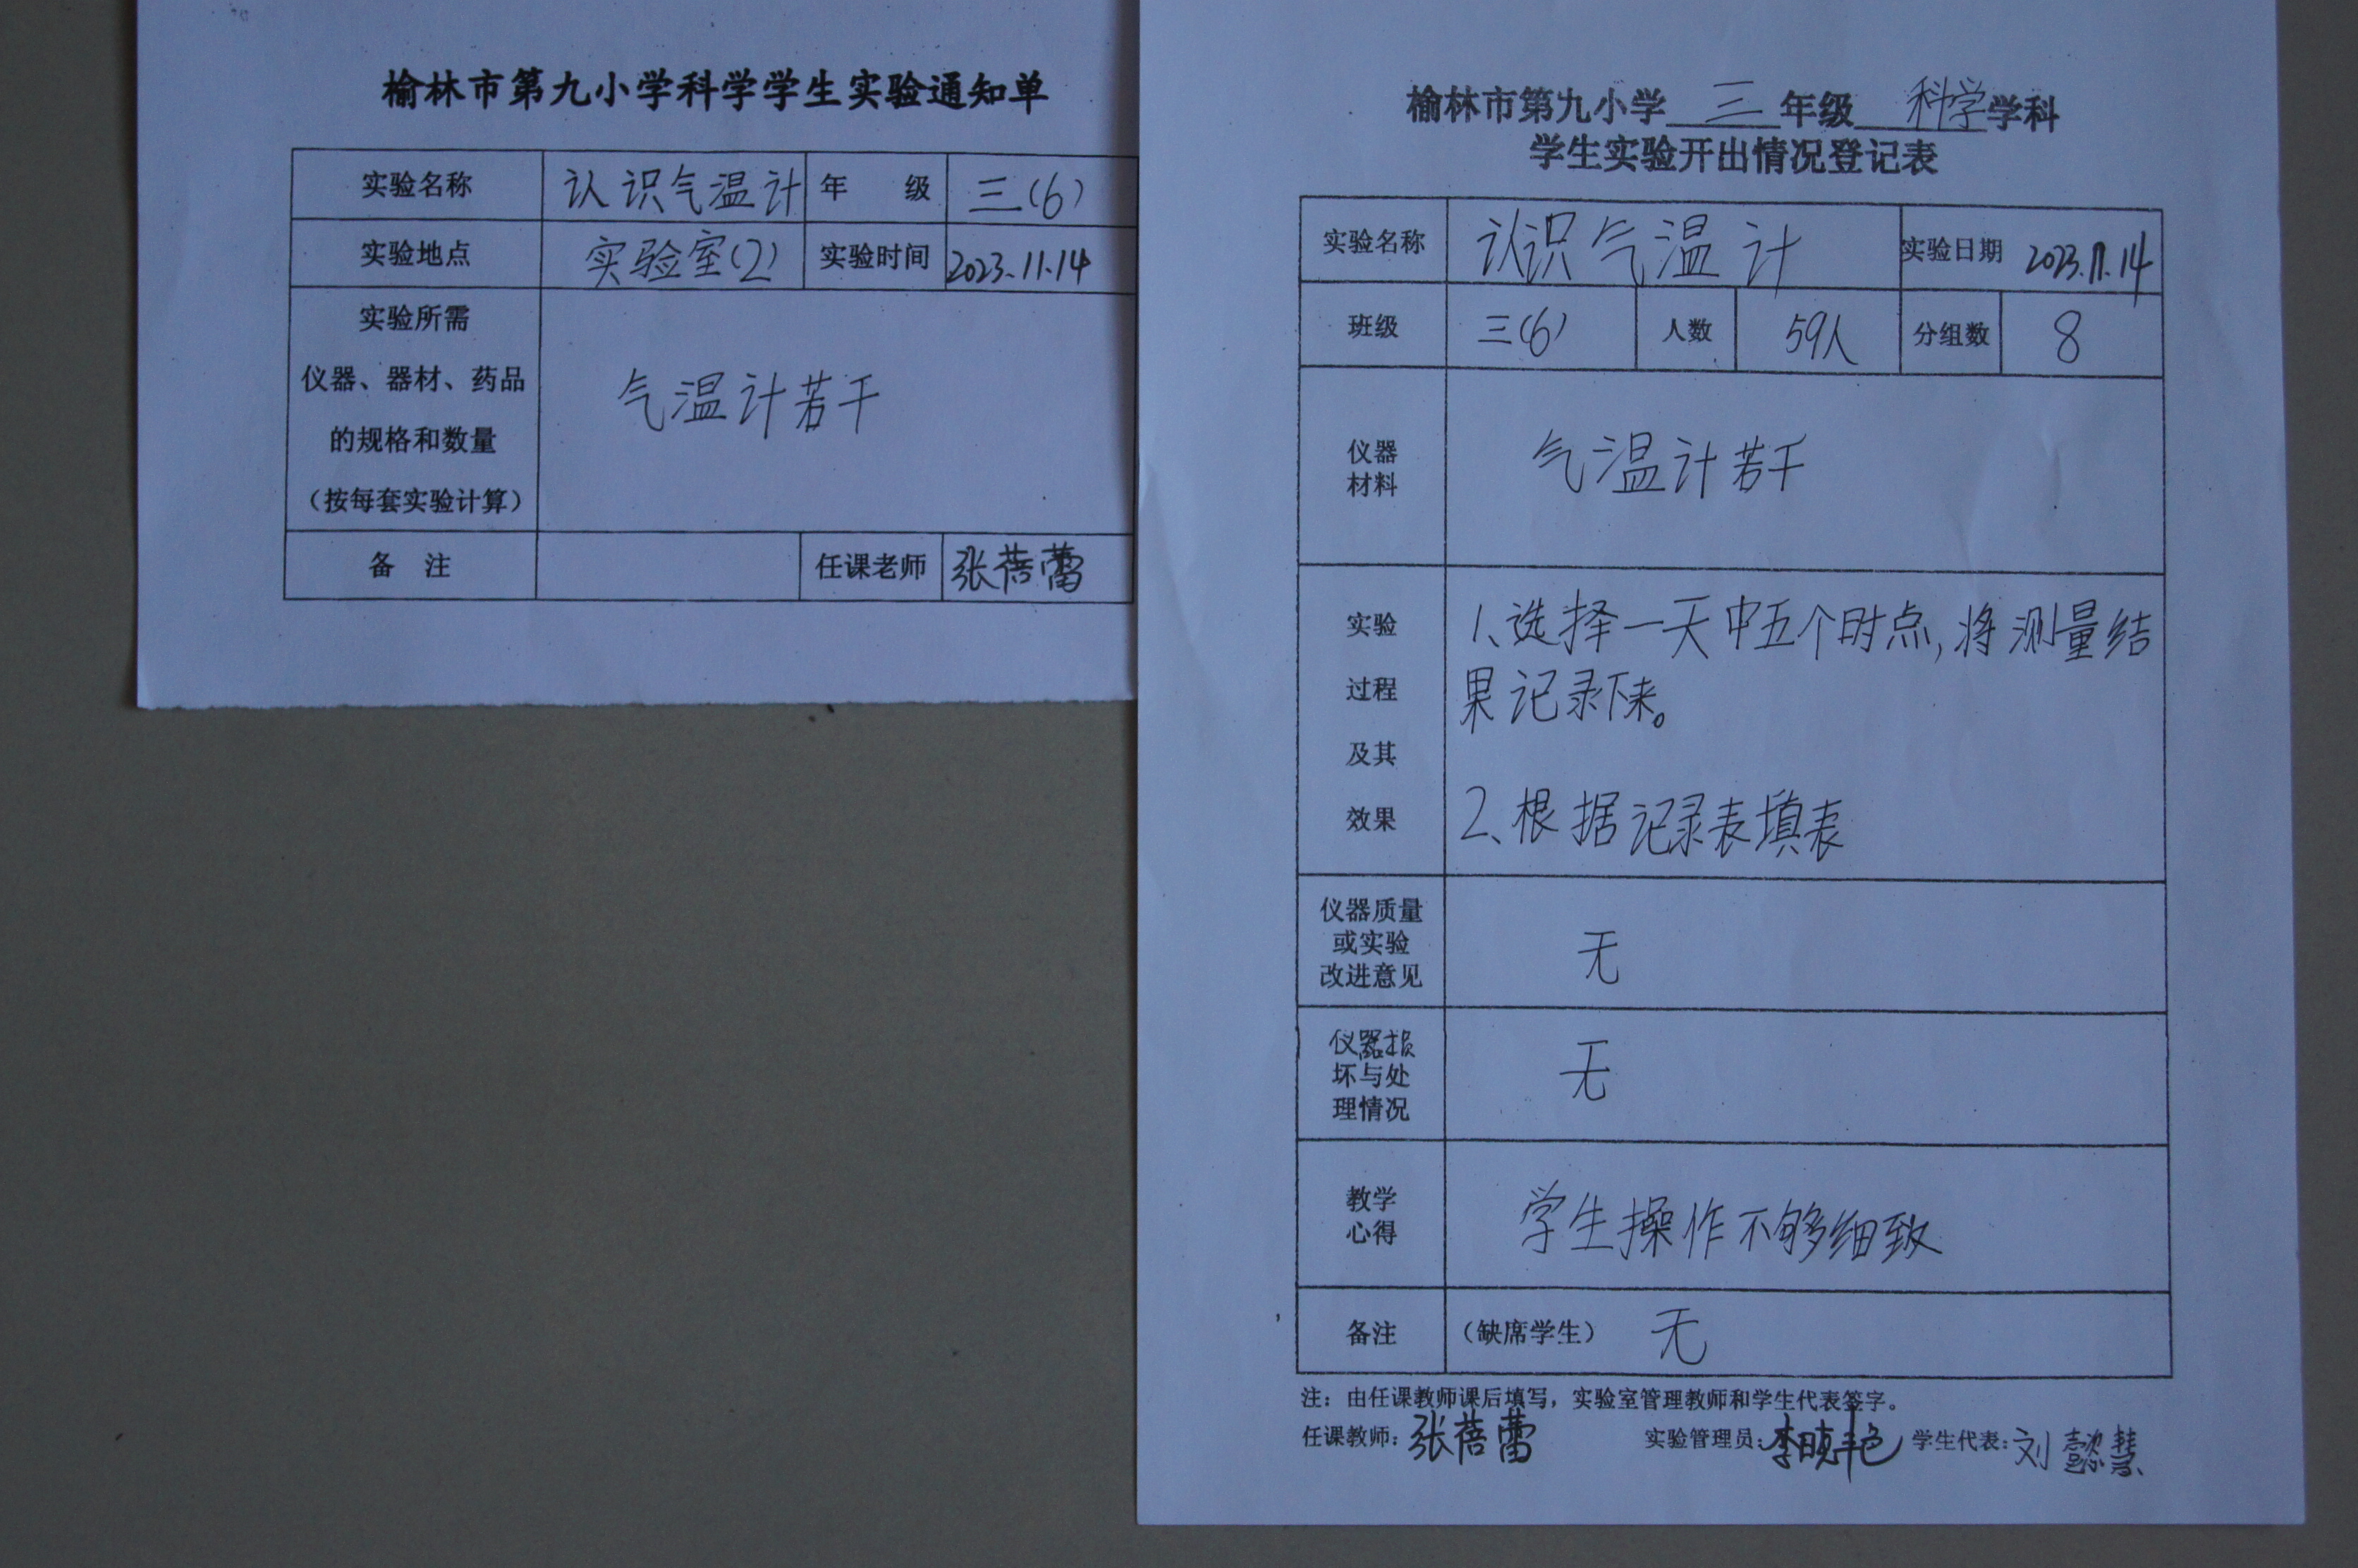 榆林市第九小学科学学生实验通知单
实验名称 认识气温计 年 级 三(6)
实验地点 实验室(2) 实验时间 2023.11.14
实验所需
仪器、器材、药品
的规格和数量
(按每套实验计算)
气温计若干
备 注 任课老师 张蓓蕾
榆林市第九小学 三 年级 科学 学科
学生实验开出情况登记表
实验名称 认识气温计 实验日期 2023.11.14
班级 三(6) 人数 59人 分组数 8
仪器
材料
气温计若干
实验
过程
及其
效果
1、选择一天中五个时点,将测量结
果记录下来。
2、根据记录表填表
仪器质量
或实验
改进意见
无
仪器损
坏与处
理情况
无
教学
心得
学生操作不够细致
备注 (缺席学生) 无
注:由任课教师课后填写,实验室管理教师和学生代表签字。
任课教师:张蓓蕾 实验管理员:李晓艳 学生代表:刘懿慧